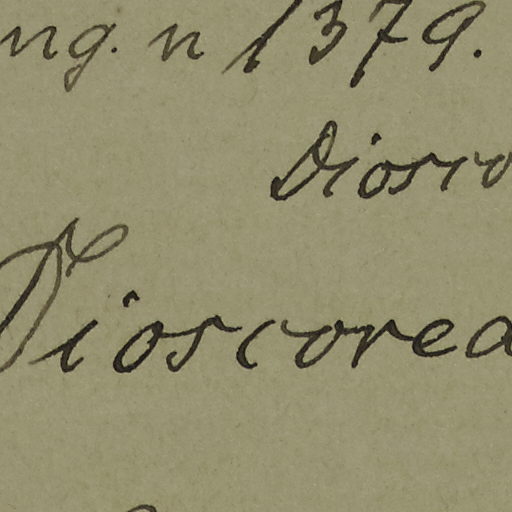 ng. n 1379.
Diosco
Dioscorea